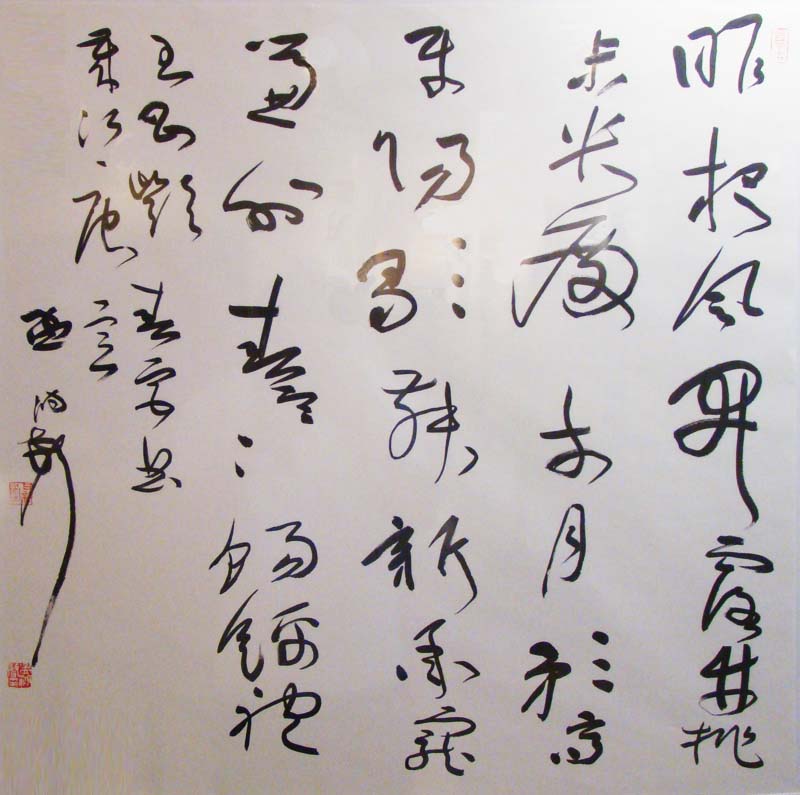 昨夜風開露井桃
未央殿前月輪高
平陽歌舞新承寵
簾外春寒賜錦袍
王昌齡春宮曲